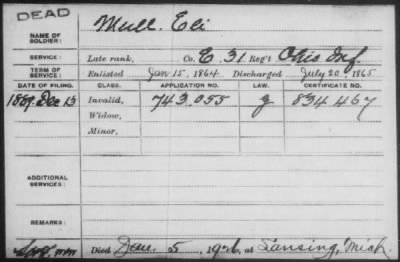 DEAD
NAME OF SOLDIER: Mull. Eli
SERVICE: Late rank, Co. E. 31 Reg't Ohio Inf.
TERM OF SERVICE: Enlisted Jan 15, 1864 Discharged July 20, 1865
DATE OF FILING. CLASS. APPLICATION NO. LAW. CERTIFICATE NO.
1889. Dec 13 Invalid, 743.055 g 834 467
Widow,
Minor,
ADDITIONAL SERVICES:
REMARKS:
Died Jan. 5, 1926, at Lansing, Mich.